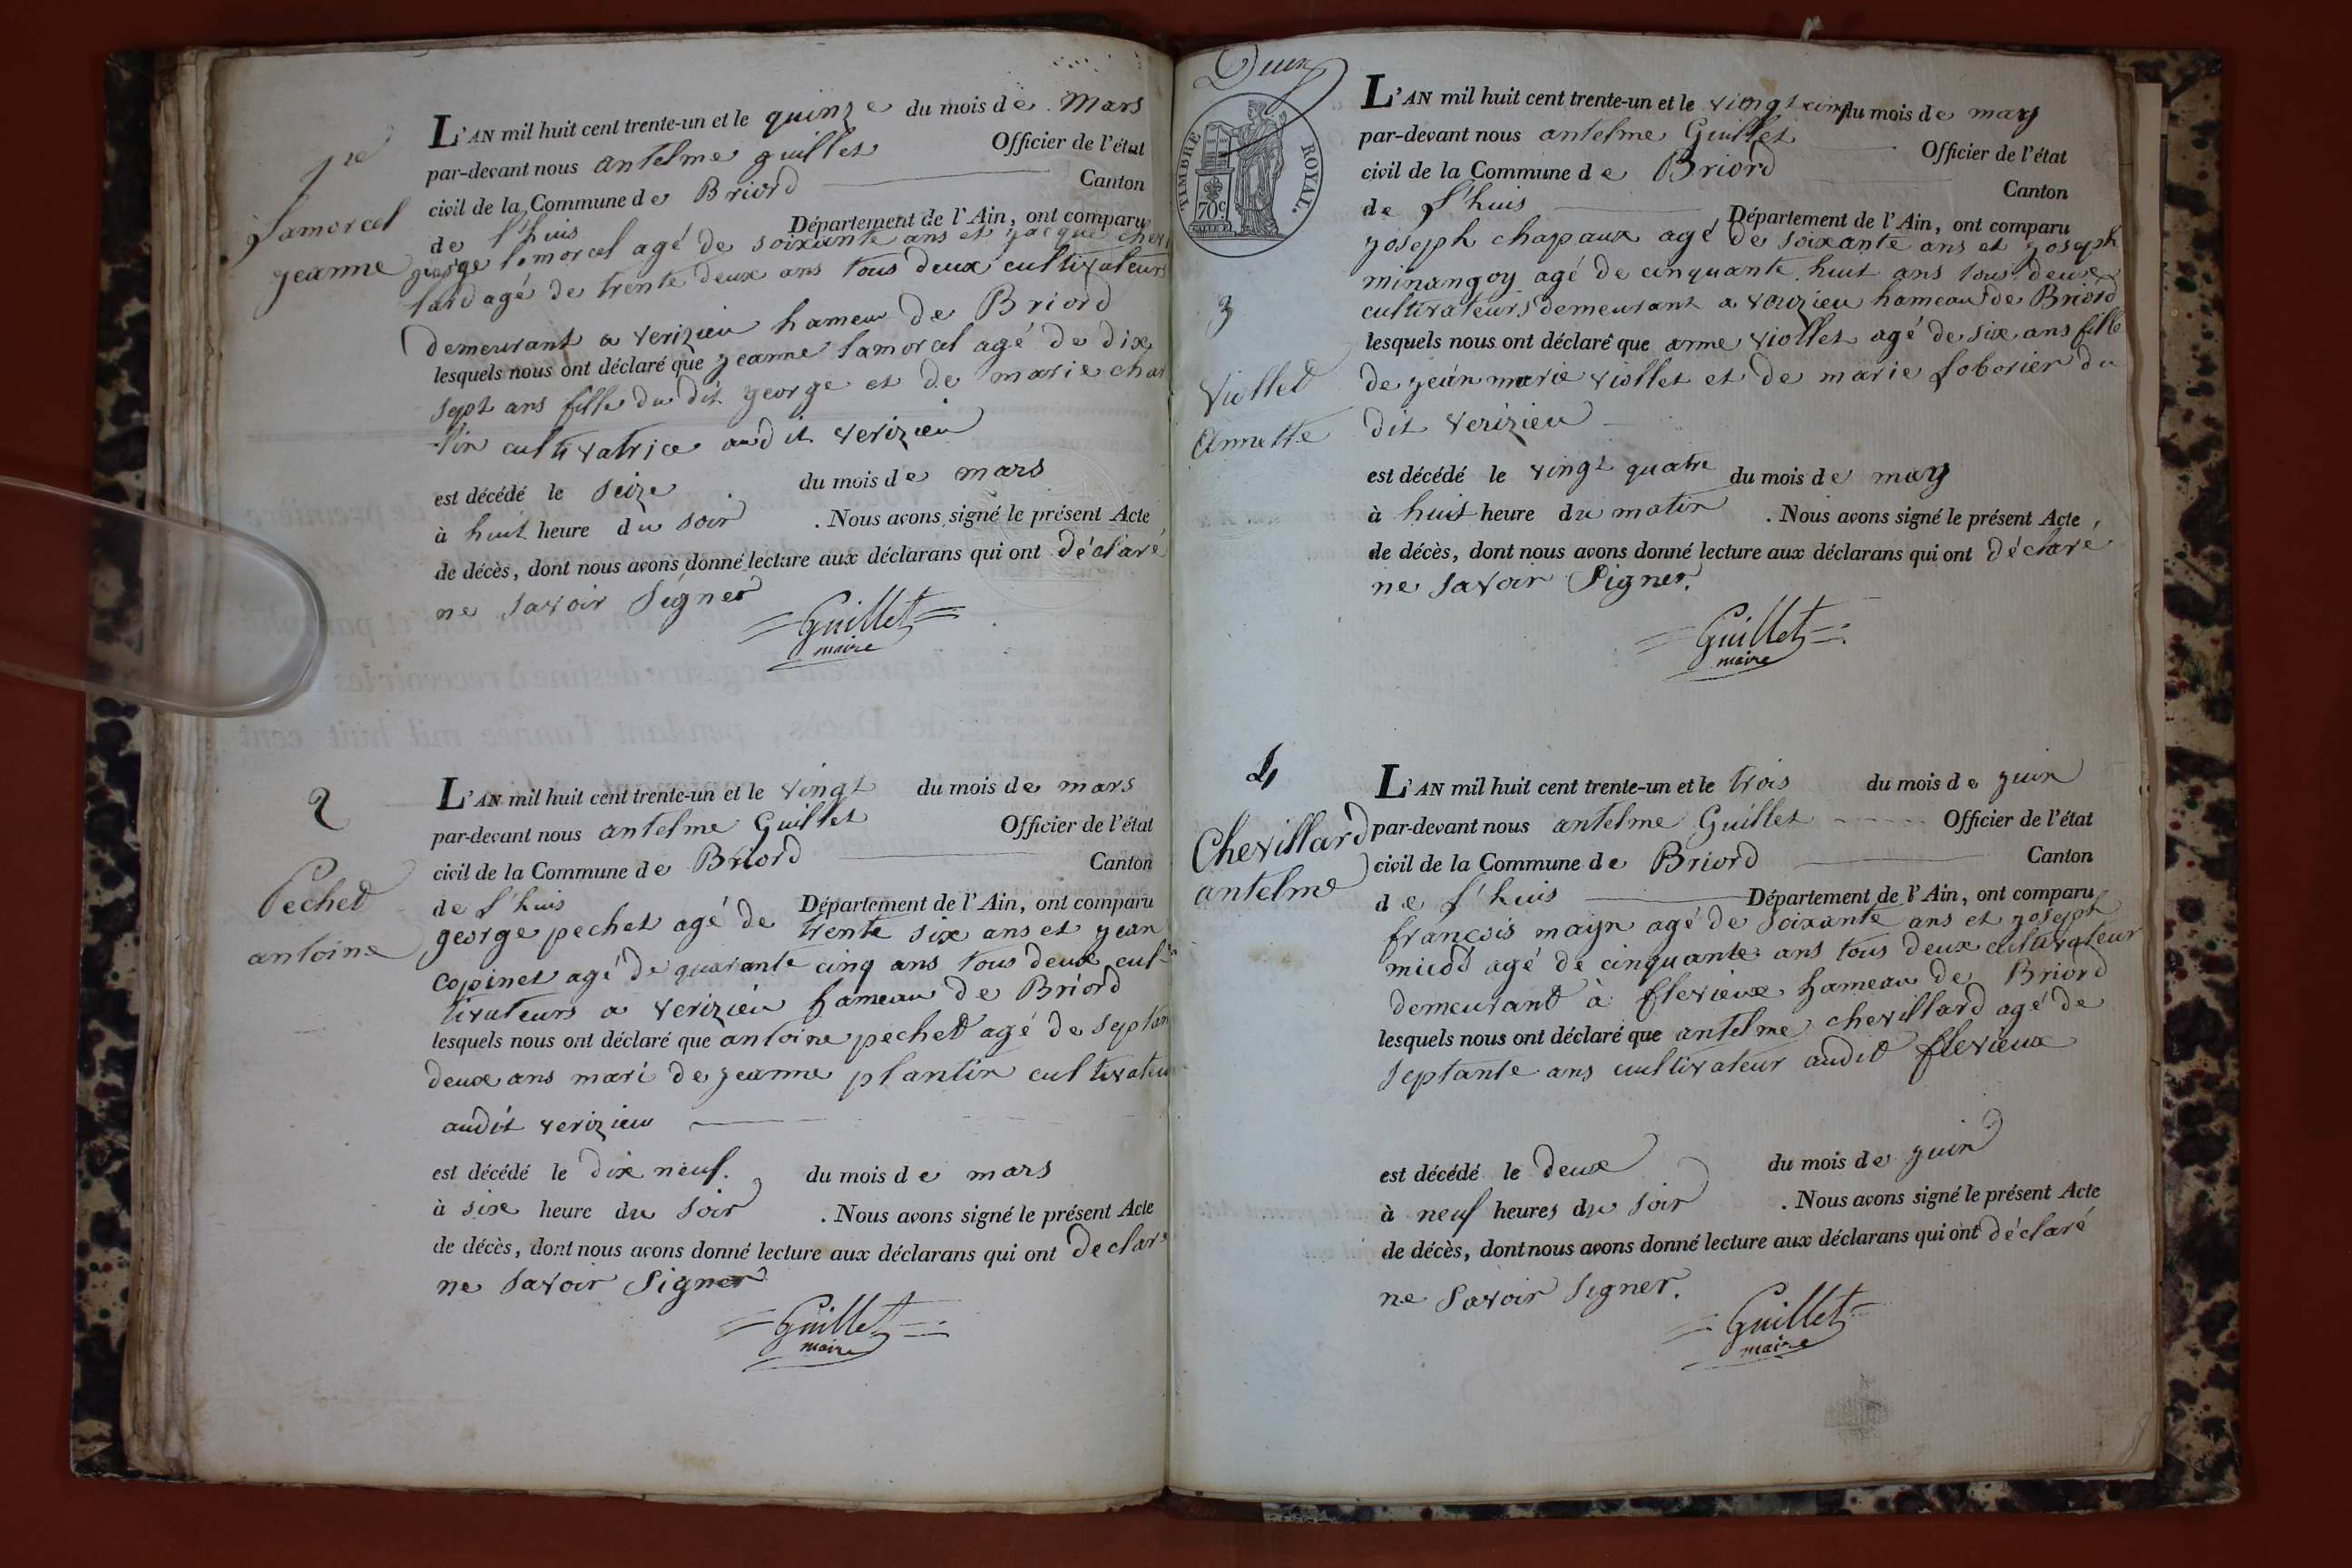 1re
Lamorcel
jeanne
L'AN mil huit cent trente-un et le quinze du mois de Mars
par-devant nous antelme guillet Officier de l'état
civil de la Commune de Briord Canton
de l'huis Département de l'Ain, ont comparu
george lamorcel agé de soixante ans et jacque chevil
lard agé de trente deux ans tous deux cultivateurs
demeurant a verizieu hameau de Briord
lesquels nous ont déclaré que jeanne lamorcel agé de dix
sept ans fille du dit george et de marie
cultivatrice audit verizieu
est décédé le seize du mois de mars
à huit heure du soir . Nous avons signé le présent Acte
de décès, dont nous avons donné lecture aux déclarans qui ont déclaré
ne savoir signer
Guillet
maire
2
Pechet
antoine
L'AN mil huit cent trente-un et le vingt du mois de mars
par-devant nous antelme Guillet Officier de l'état
civil de la Commune de Briord Canton
de l'huis Département de l'Ain, ont comparu
george pechet agé de trente six ans et jean
copinet agé de quarante cinq ans tous deux cul-
tivateurs a verizieu hameau de Briord
lesquels nous ont déclaré que antoine pechet agé de septan
deux ans mari de jeanne plantin cultivateur
audit verizieu
est décédé le dix neuf. du mois de mars
à six heure du soir . Nous avons signé le présent Acte
de décès, dont nous avons donné lecture aux déclarans qui ont declaré
ne savoir signer
Guillet
maire
Deux
TIMBRE ROYAL.
70c
3
Viollet
Annette
L'AN mil huit cent trente-un et le vingt cinq du mois de may
par-devant nous antelme Guillet Officier de l'état
civil de la Commune de Briord Canton
de l'huis Département de l'Ain, ont comparu
joseph chapaux agé de soixante ans et joseph
minangoy agé de cinquante huit ans tous deux
cultivateurs demeurant a verizieu hameau de Briord
lesquels nous ont déclaré que anne viollet agé de six ans fille
de jean marie viollet et de marie loborier du
dit verizieu
est décédé le vingt quatre du mois de may
à huit heure du matin . Nous avons signé le présent Acte
de décès, dont nous avons donné lecture aux déclarans qui ont déclaré
ne savoir signer.
Guillet
maire
4
Chevillard
antelme
L'AN mil huit cent trente-un et le trois du mois de juin
par-devant nous antelme Guillet Officier de l'état
civil de la Commune de Briord Canton
de l'huis Département de l'Ain, ont comparu
françois agé de soixante ans et joseph
agé de cinquante ans tous deux cultivateur
demeurant à flevieux hameau de Briord
lesquels nous ont déclaré que antelme chevillard agé de
septante ans cultivateur audit flevieux
est décédé le deux du mois de juin
à neuf heures du soir . Nous avons signé le présent Acte
de décès, dont nous avons donné lecture aux déclarans qui ont déclaré
ne savoir signer.
Guillet
maire